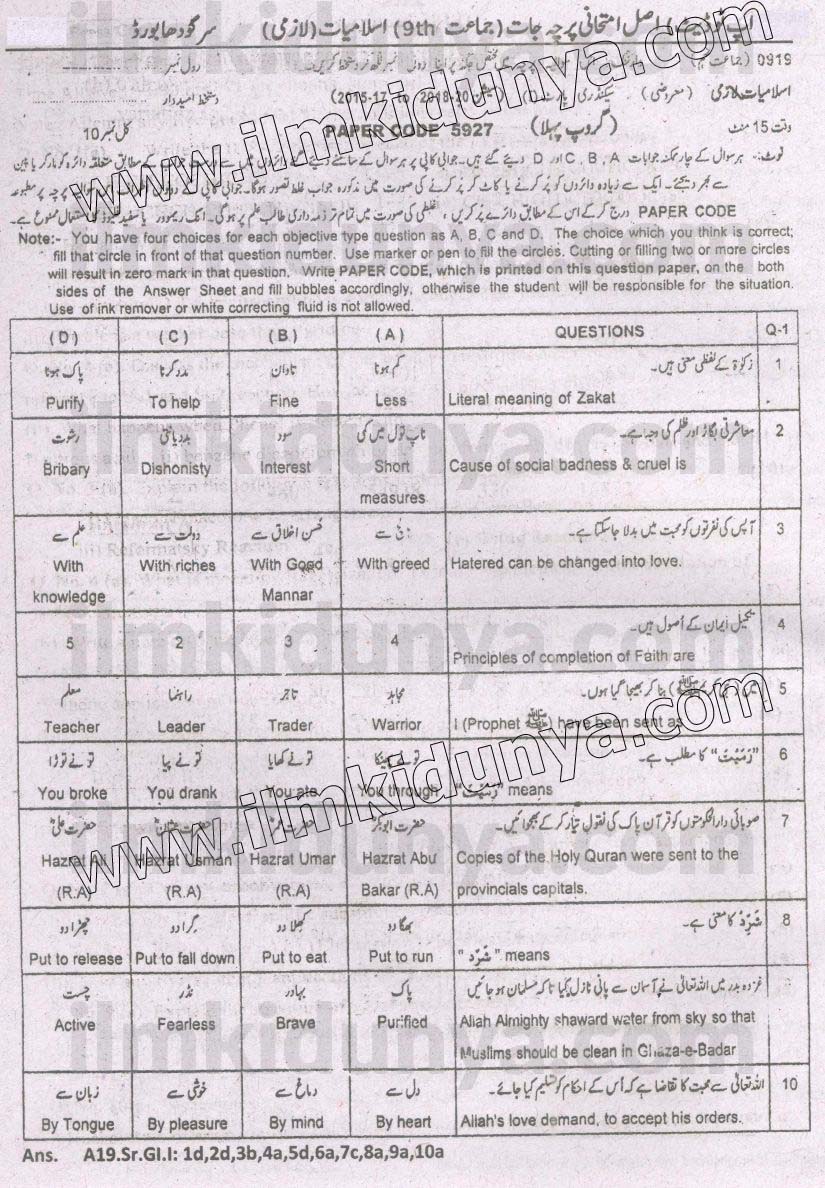 اپ ٹو ڈیٹ / اصل امتحانی پرچہ جات (جماعت 9th) اسلامیات (لازمی) سرگودھا بورڈ
0919 رول نمبر
اسلامیات لازمی (معروضی) (سیشن 2015-17 to 2018-20) دستخط امیدوار
وقت 15 منٹ (گروپ پہلا) PAPER CODE 5927 کل نمبر 10
نوٹ:- ہر سوال کے چار ممکنہ جوابات A, B, C اور D دیئے گئے ہیں۔ جوابی کاپی پر ہر سوال کے سامنے دیئے گئے دائروں میں سے کے مطابق متعلقہ دائرہ کو مارکر یا پین
سے بھر دیجئے۔ ایک سے زیادہ دائروں کو پُر کرنے یا کاٹ کر پُر کرنے کی صورت میں مذکورہ جواب غلط تصور ہوگا۔ جوابی کاپی کے پرچہ پر مطبوعہ
PAPER CODE درج کر کے اس کے مطابق دائرے پُر کریں، غلطی کی صورت میں تمام تر ذمہ داری طالب علم پر ہوگی۔ انک ریموور یا سفید فلیوڈ کا استعمال ممنوع ہے۔
Note:- You have four choices for each objective type question as A, B, C and D. The choice which you think is correct;
fill that circle in front of that question number. Use marker or pen to fill the circles. Cutting or filling two or more circles
will result in zero mark in that question. Write PAPER CODE, which is printed on this question paper, on the both
sides of the Answer Sheet and fill bubbles accordingly, otherwise the student will be responsible for the situation.
Use of ink remover or white correcting fluid is not allowed.
(D) (C) (B) (A) QUESTIONS Q-1
پاک ہونا مدد کرنا تاوان کم ہونا زکوٰۃ کے لفظی معنی ہیں۔ 1
Purify To help Fine Less Literal meaning of Zakat
رشوت بددیانتی سود ناپ تول میں کمی معاشرتی بگاڑ اور ظلم کی وجہ ہے۔ 2
Bribary Dishonisty Interest Short Cause of social badness & cruel is
measures
علم سے دولت سے حُسنِ اخلاق سے سے آپس کی نفرتوں کو محبت میں بدلا جا سکتا ہے 3
With With riches With Good With greed Hatered can be changed into love.
knowledge Mannar
5 2 3 4 تکمیل ایمان کے اُصول ہیں۔ 4
Principles of completion of Faith are
معلم راہنما تاجر مجاہد میں (نبی کریم ﷺ) بنا کر بھیجا گیا ہوں۔ 5
Teacher Leader Trader Warrior I (Prophet ﷺ) have been sent as
تو نے توڑا تو نے پیا تو نے کھایا تو نے پھینکا "رَمَیْتَ" کا مطلب ہے۔ 6
You broke You drank You ate You through "رَمَیْتَ" means
حضرت علیؓ حضرت عثمانؓ حضرت عمرؓ حضرت ابوبکرؓ صوبائی دارالحکومتوں کو قرآن پاک کی نقول تیار کر کے بھجوائیں۔ 7
Hazrat Ali Hazrat Usman Hazrat Umar Hazrat Abu Copies of the Holy Quran were sent to the
(R.A) (R.A) (R.A) Bakar (R.A) provincials capitals.
چھڑا دو گرا دو کھلا دو بھگا دو شَرِّدْ کا معنی ہے۔ 8
Put to release Put to fall down Put to eat Put to run "شَرِّدْ" means
چست نڈر بہادر پاک غزوہ بدر میں اللہ تعالیٰ نے آسمان سے پانی نازل کیا تاکہ مسلمان ہو جائیں 9
Active Fearless Brave Purified Allah Almighty shaward water from sky so that
Muslims should be clean in Ghaza-e-Badar
زبان سے خوشی سے دماغ سے دل سے اللہ تعالیٰ سے محبت کا تقاضا ہے کہ اُس کے احکام کو تسلیم کیا جائے۔ 10
By Tongue By pleasure By mind By heart Allah's love demand, to accept his orders.
Ans. A19.Sr.Gl.I: 1d,2d,3b,4a,5d,6a,7c,8a,9a,10a
www.ilmkidunya.com
www.ilmkidunya.com
ilmkidunya.com
ilmkidunya.com
ilmkidunya.com
ilmkidunya.com
ilmkidunya.com